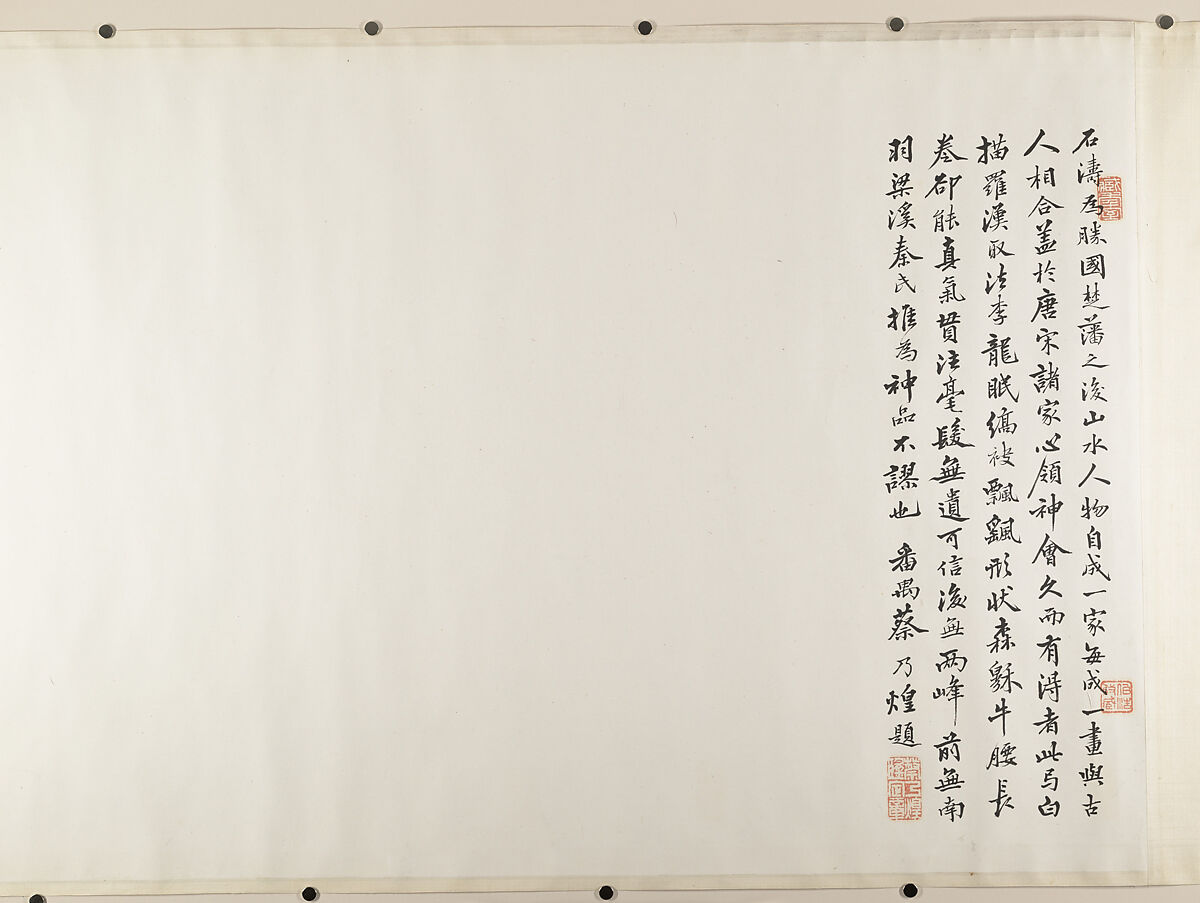 石濤為勝國楚藩之後山水人物自成一家每成一畫與古
人相合蓋於唐宋諸家心領神會久而有得者此馬白
描羅漢取法李龍眠縞被飄颻形狀森 牛腰長
卷卻能真氣貫注毫髮無遺可信後無兩峰前無南
羽梁溪秦氏推為神品不謬也 番禺蔡乃煌題